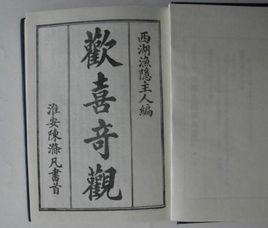 西湖漁隱主人編
歡喜奇觀
淮安陳滌凡書耑